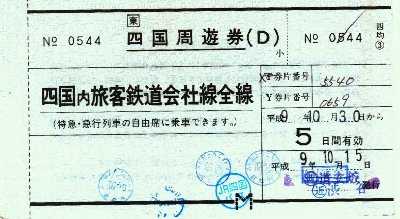 東
№ 0544 四国周遊券(D) 小 № 0544 四均③
四国内旅客鉄道会社線全線
(特急・急行列車の自由席に乗車できます。)
券片番号 5540
Y券片番号 0659
平成 9年 10月 30日から
5日間有効
平成 9年 10月 15日
JR四国
M